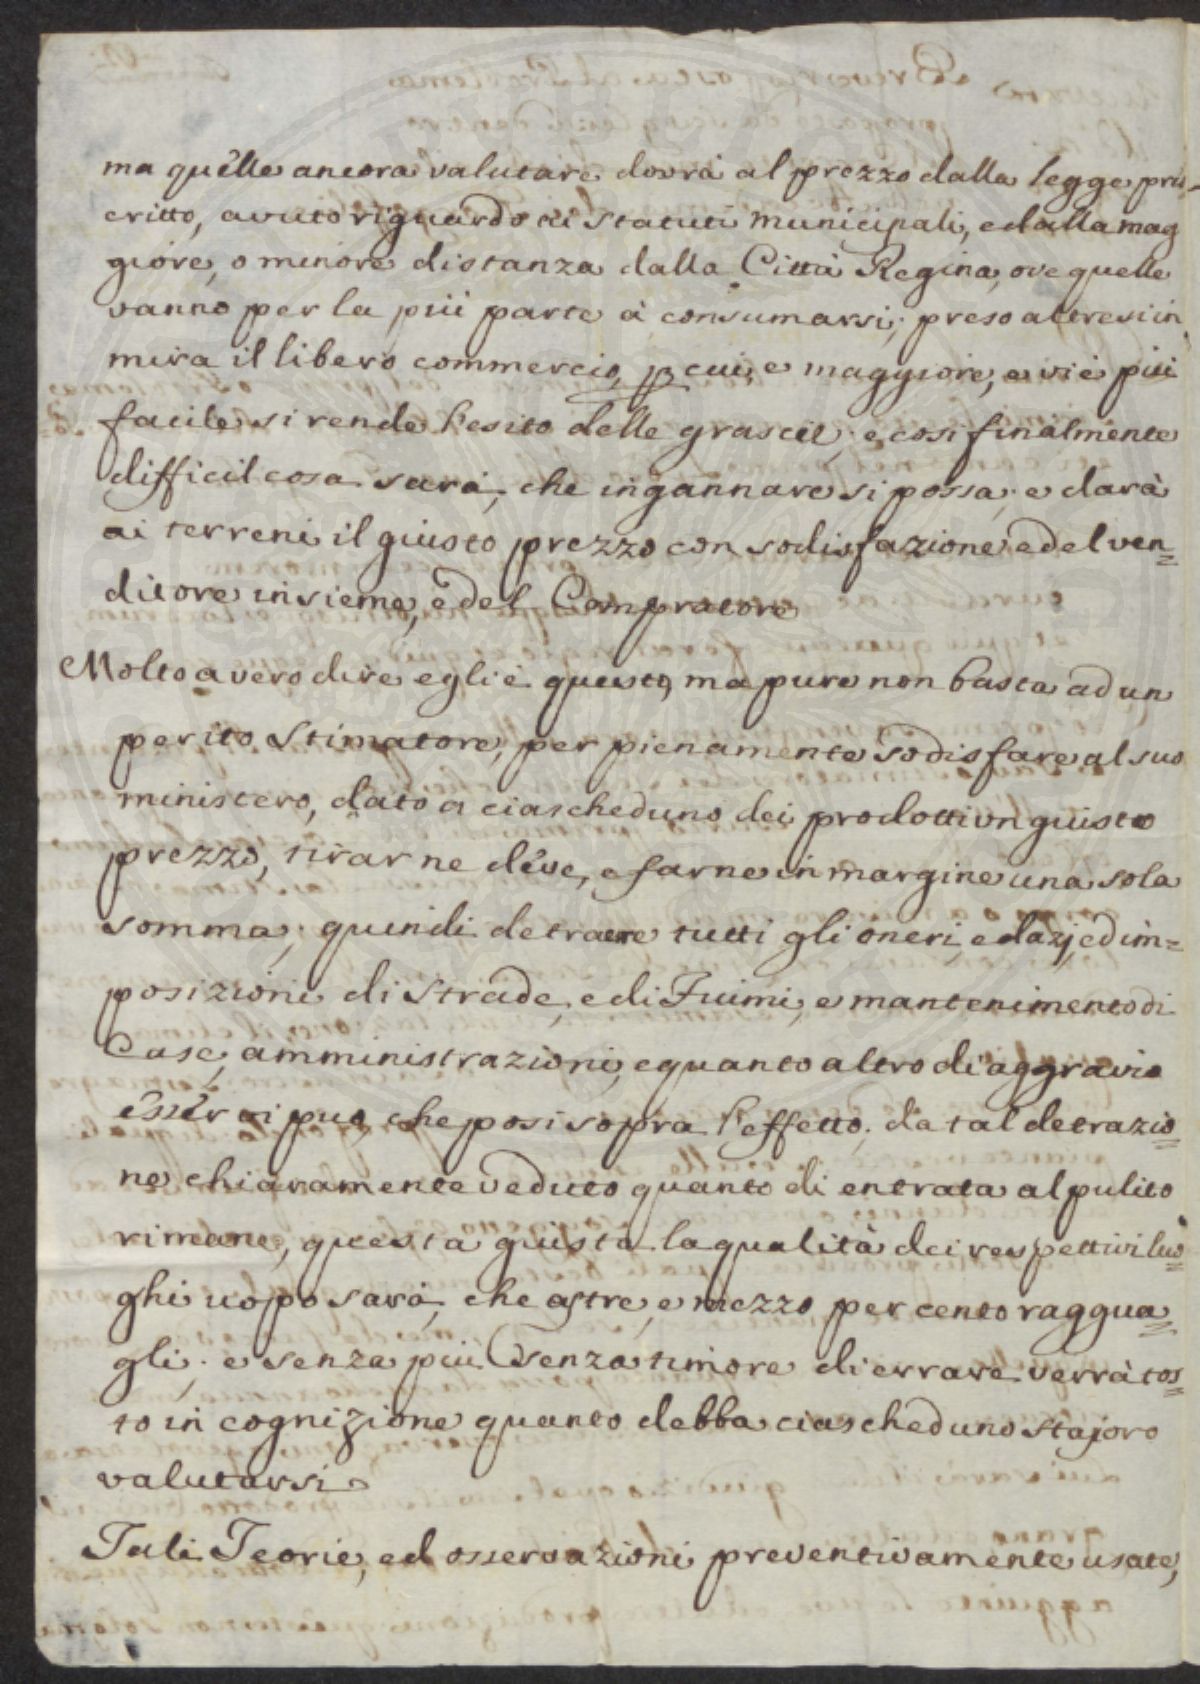 ma quelle ancora valutare dovrà al prezzo dalla legge pres=
critto, avuto riguardo ai statuti municipali, e dalla mag
giore, o minore distanza dalla Città Regina, ove quelle
vanno per la più parte à consumarsi; preso altresi in
mira il libero commercio, p cui, e maggiore, e vie più
facile si rende l'esito delle grascie; e cosi finalmente
difficil cosa sarà, che ingannare si possa; e darà
ai terreni il giusto prezzo con sodisfazione e del ven=
ditore insieme, e del Compratore
Molto a vero dire egli è questo, ma pure non basta ad un
perito Stimatore, per pienamente sodisfare al suo
ministero, dato a ciascheduno dei prodotti un giusto
prezzo, tirar ne deve, e farne in margine una sola
somma; quindi detrarre tutti gli oneri, e dazj, ed im=
posizioni di Strade, e di Fiumi, e mantenimento di
Case, amministrazioni, e quanto altro di aggravio
esser vi può, che posi sopra l'effetto; da tal detrazio=
ne chiaramente veduto quanto di entrata al pulito
rimane, questa giusta la qualità dei respettivi luo=
ghi uopo sarà, che a tre, e mezzo per cento raggua=
gli; e senza più senza timore di errare verrà tos=
to in cognizione quanto debba ciascheduno stajoro
valutarsi.
Tali Teorie, ed osservazioni preventivamente usate,